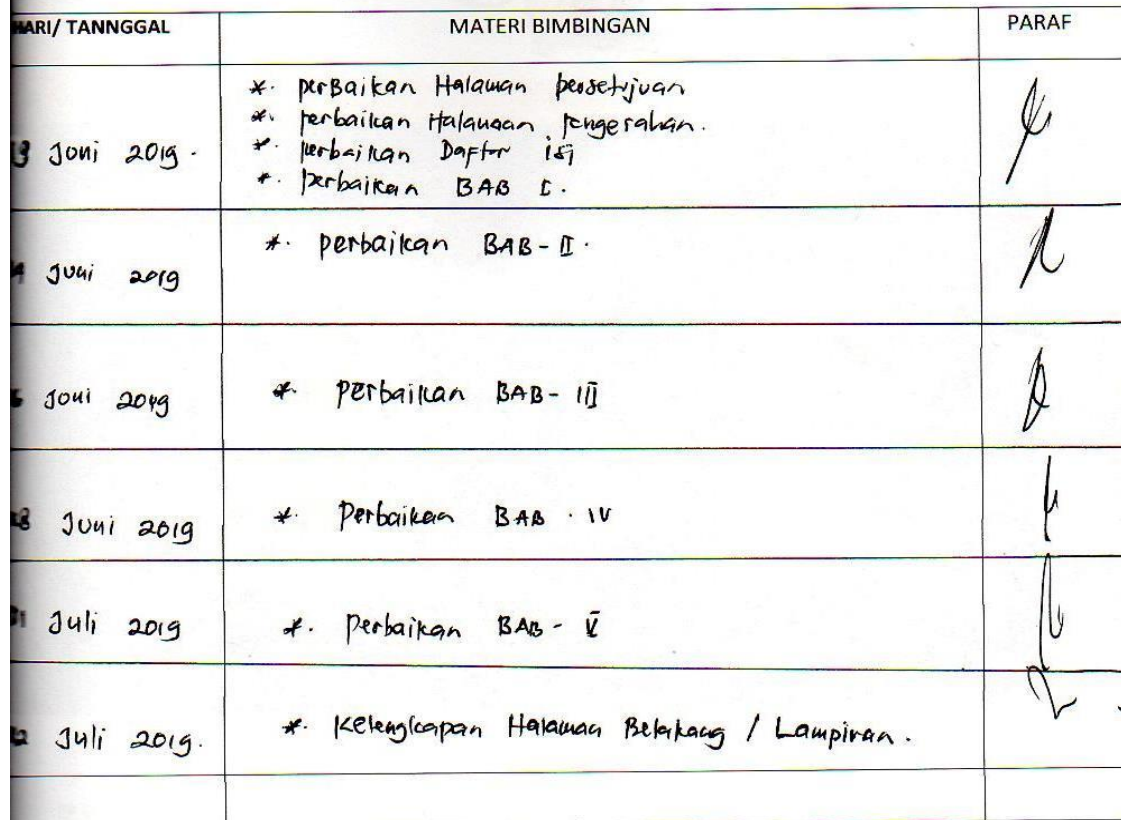 HARI/ TANNGGAL MATERI BIMBINGAN PARAF
*. perBaikan Halaman persetujuan
*. perbaikan Halaman pengesahan.
3 Joni 2019. *. perbaikan Daftar isi
*. perbaikan BAB I.
*. perbaikan BAB-II.
4 Juni 2019
Joni 2019 *. perbaikan BAB-III
8 Juni 2019 *. Perbaikan BAB-IV
1 Juli 2019 *. Perbaikan BAB-V
2 Juli 2019. *. Kelengkapan Halaman Belakang / Lampiran.